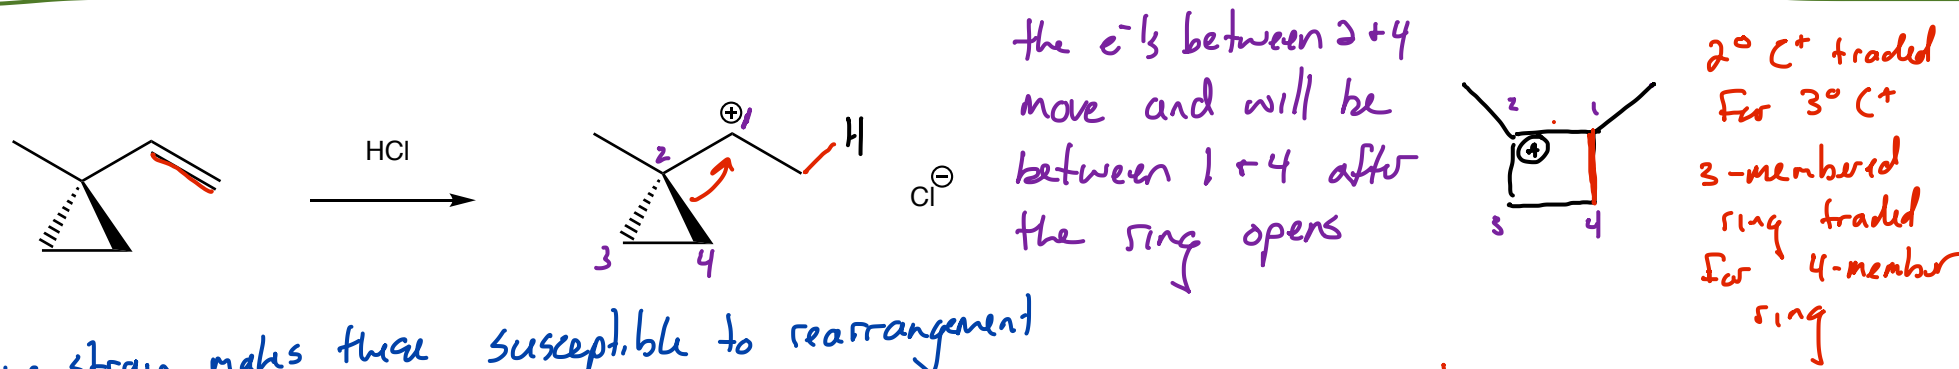 HCl
⊕
1
2
3
4
H
Cl⊖
the e⁻'s between 2 + 4
move and will be
between 1 + 4 after
the ring opens
2
1
⊕
3
4
2° C⁺ traded
For 3° C⁺
3-membered
ring traded
For 4-member
ring
strain makes these susceptible to rearrangement